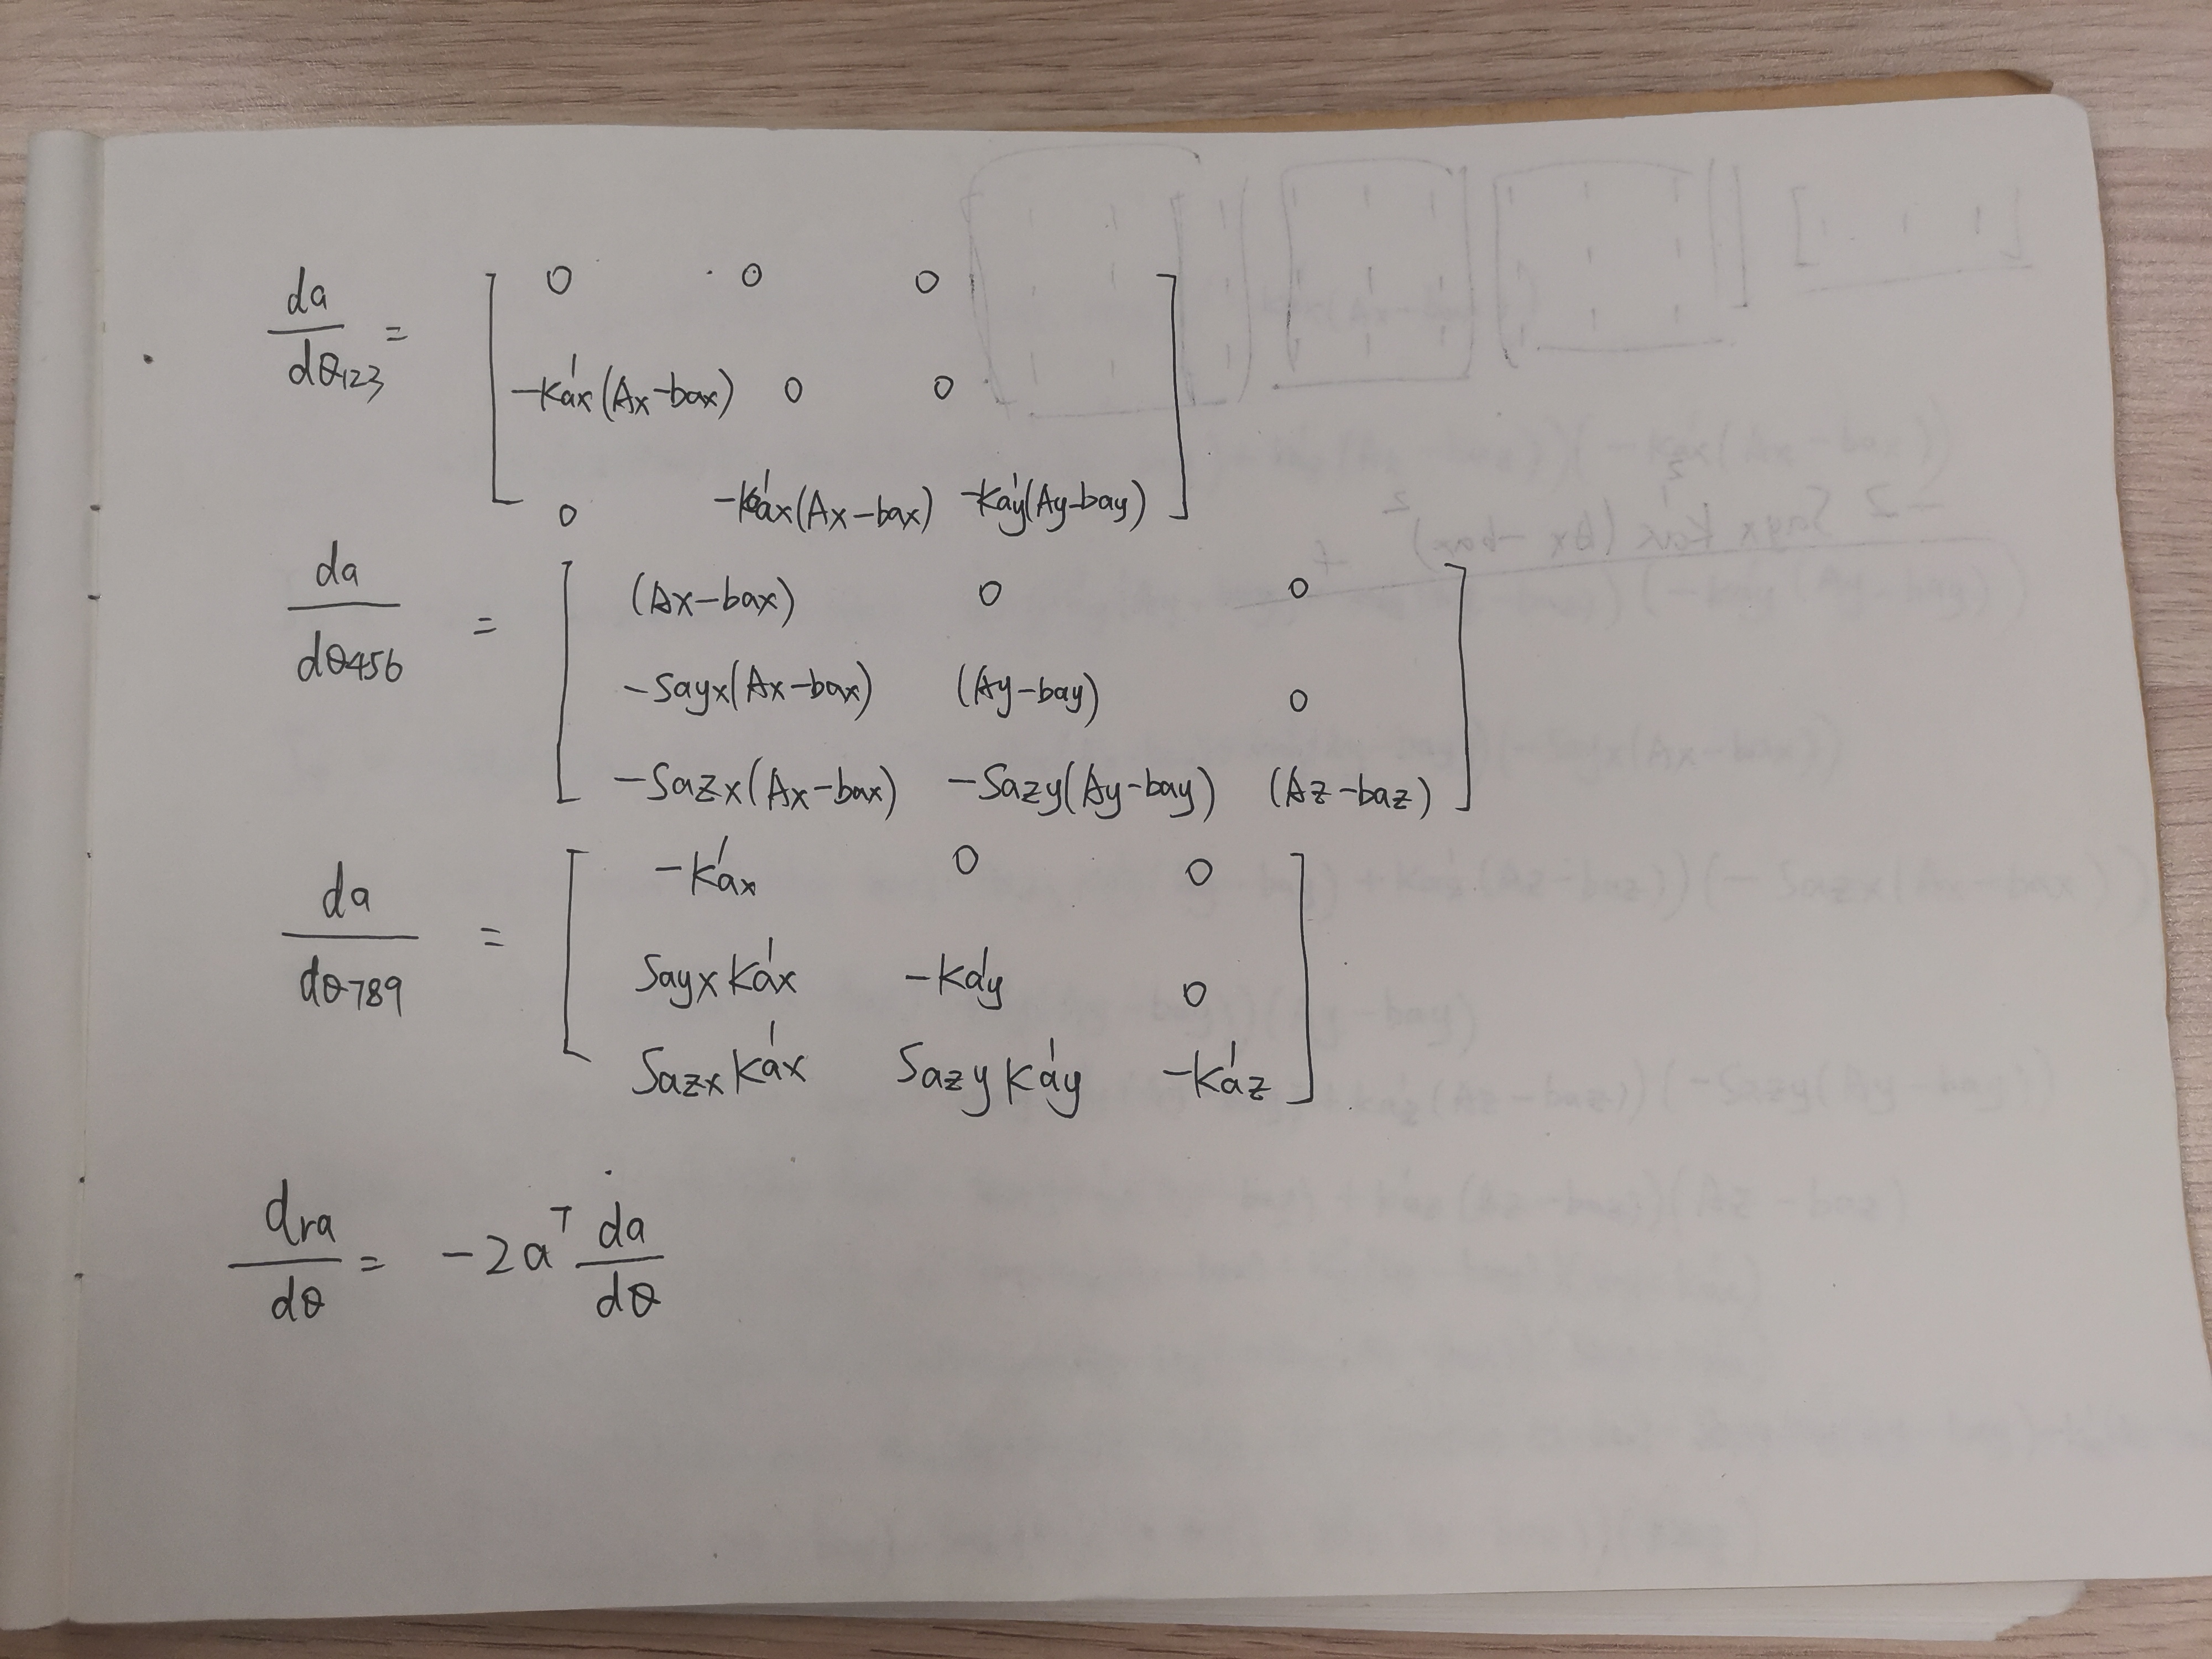 da/dθ123 = [ 0 0 0
-Ka'x(Ax-bax) 0 0
0 -Ka'x(Ax-bax) -Ka'y(Ay-bay) ]
da/dθ456 = [ (Ax-bax) 0 0
-Sayx(Ax-bax) (Ay-bay) 0
-Sazx(Ax-bax) -Sazy(Ay-bay) (Az-baz) ]
da/dθ789 = [ -Ka'x 0 0
SayxKa'x -Ka'y 0
SazxKa'x SazyKa'y -Ka'z ]
dra/dθ = -2a^T da/dθ